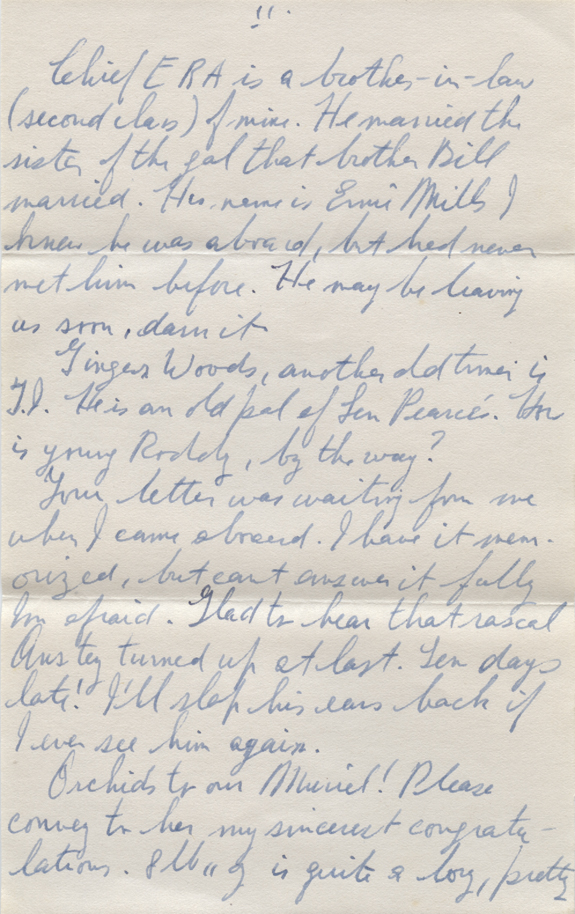 11.
Chief ERA is a brother-in-law
(second class) of mine. He married the
sister of the gal that brother Bill
married. His name is Ernie Mills I
knew he was aboard, but had never
met him before. He may be leaving
us soon, damit
Ginger Woods, another old timer is
T.I. He is an old pal of Len Pearce's. How
is young Roddy, by the way?
Your letter was waiting for me
when I came aboard. I have it mem-
orized, but can't answer it fully
I'm afraid. Glad to hear that rascal
Anstey turned up at last. Ten days
late! I'll slap his ears back if
I ever see him again.
Orchids to our Muriel! Please
convey to her my sincerest congratu-
lations. 8 lb 11 oz is quite a boy, pretty